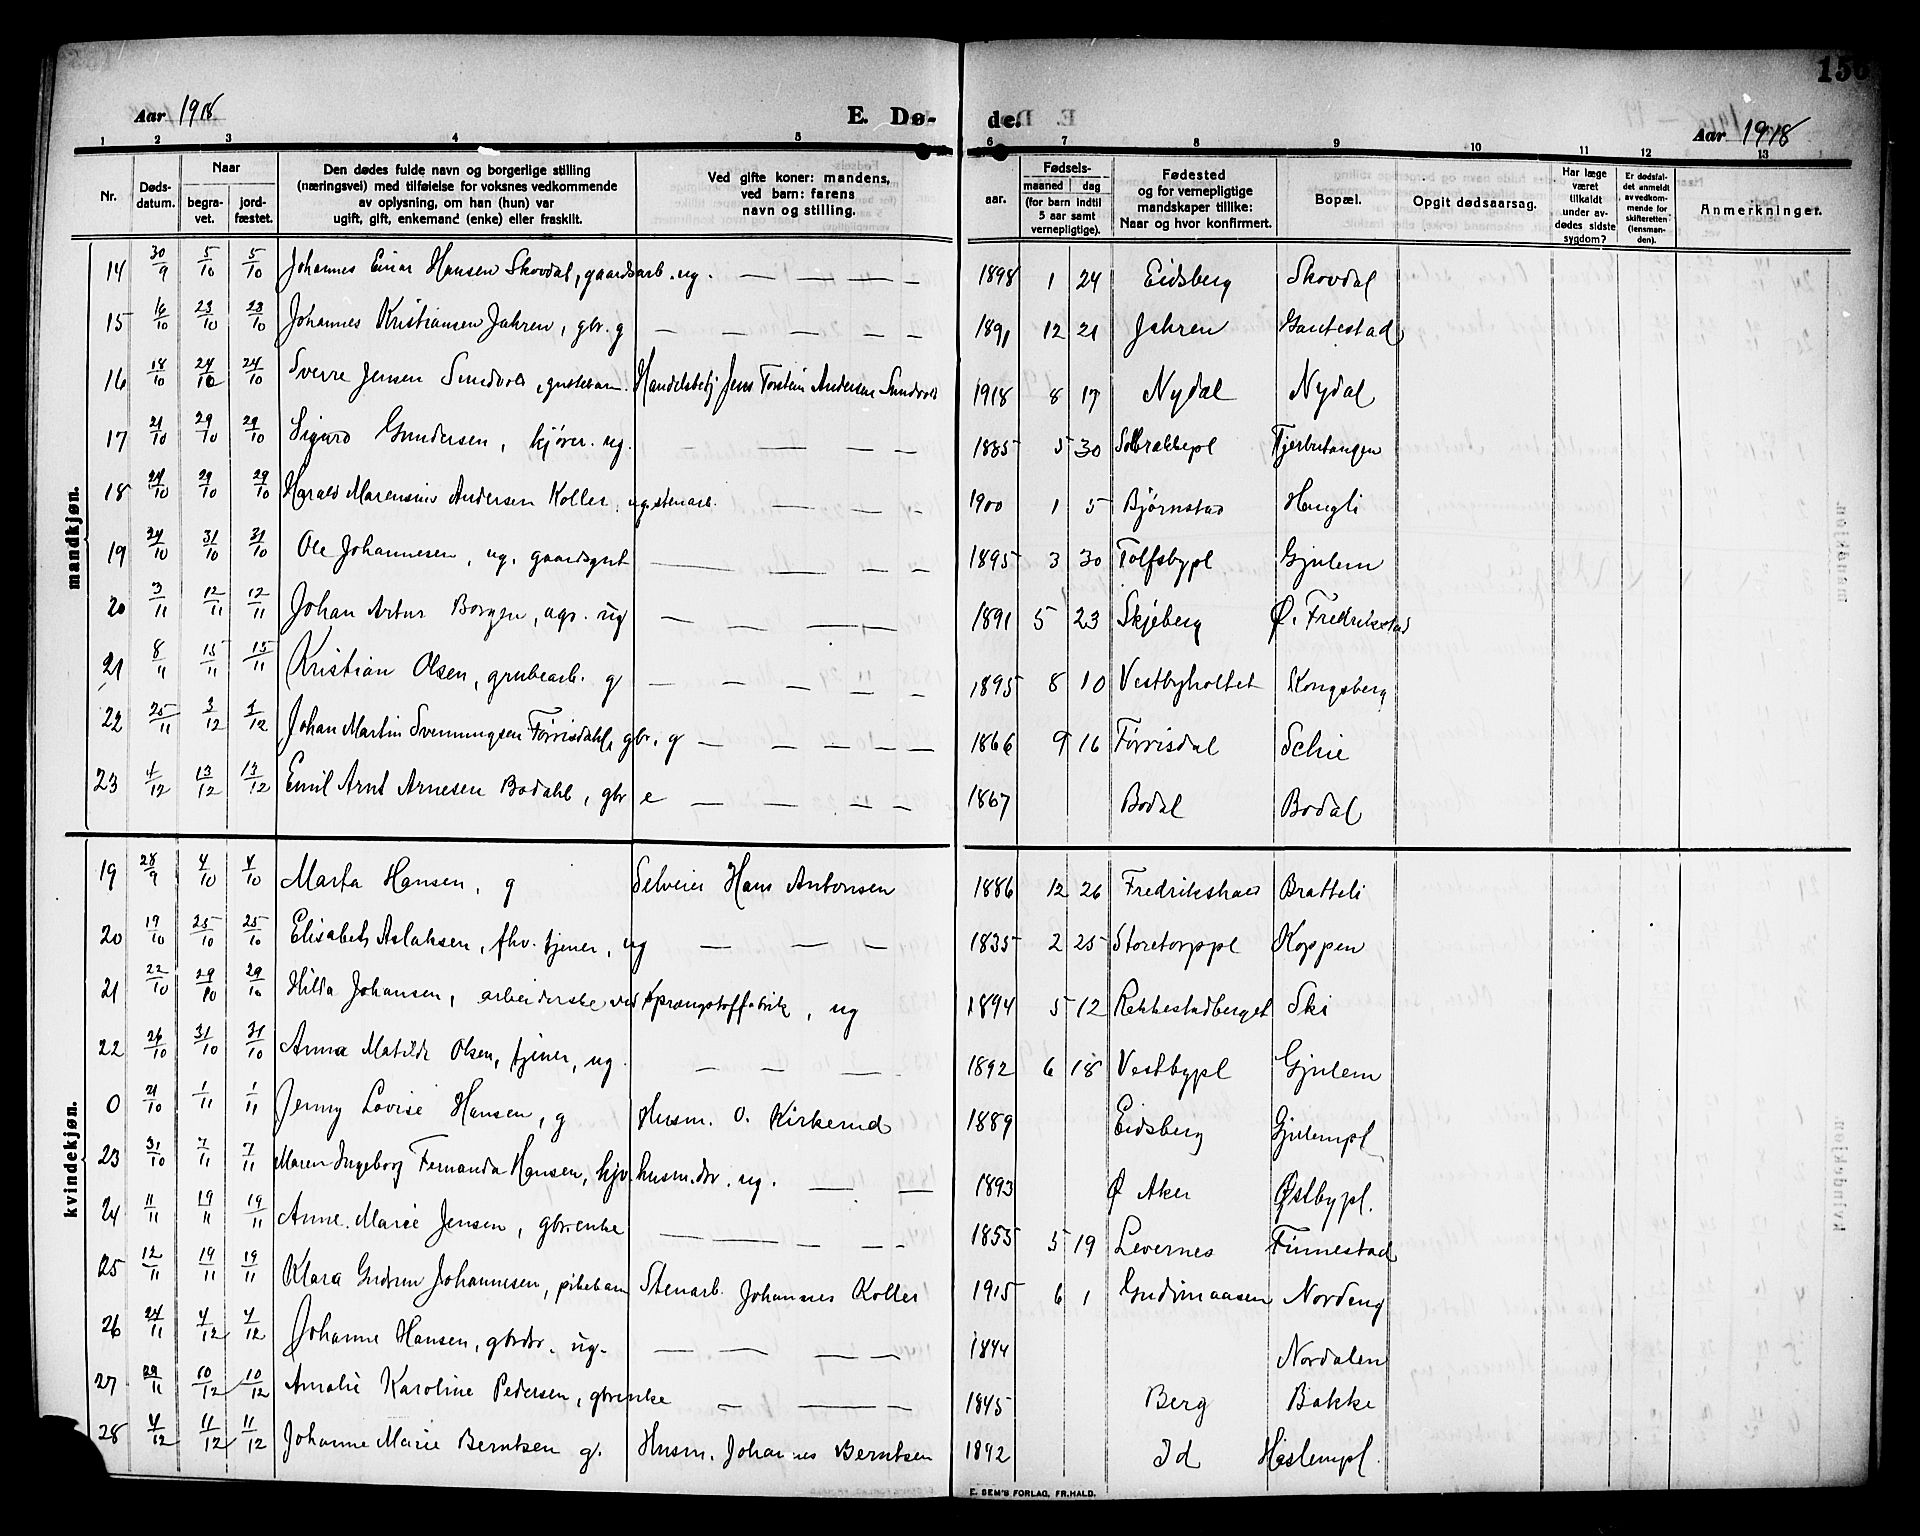 Aar 1918 E. Dø- de. Aar 1918 156
1 2 3 4 5 6 7 8 9 10 11 12 13
Nr. Døds-datum. Naar begra-vet. jord-fæstet. Den dødes fulde navn og borgerlige stilling (næringsvei) med tilføielse for voksnes vedkommende av oplysning, om han (hun) var ugift, gift, enkemand (enke) eller fraskilt. Ved gifte koner: mandens, ved barn: farens navn og stilling. Fødsels- aar. maaned dag (for barn indtil 5 aar samt vernepligtige). Fødested og for vernepligtige mandskaper tillike: Naar og hvor konfirmert. Bopæl. Opgit dødsaarsag. Har læge været tilkaldt under av-dødes sidste sygdom? Er dødsfal-det anmeldt av vedkom-mende for skifteretten (lensman-den). Anmerkninger.
mandkjøn.
14 30/9 5/10 5/10 Johannes Einar Hansen Skovdal, gaardsarb. ug. — — — — 1898 1 24 Eidsberg Skovdal
15 16/10 23/10 23/10 Johannes Kristiansen Jahren, gbr. g — — — — — 1891 12 21 Jahren Gautestad
16 18/10 24/10 24/10 Sverre Jensen Sundvold, guttebarn. Handelsbetj Jens Torstein Andersen Sundvold 1918 8 17 Nydal Nydal
17 21/10 29/10 29/10 Sigurd Gundersen, kjører. ug. — — — — — 1885 5 30 Solbrækkepl Tjerbutangen
18 24/10 29/10 29/10 Harald Marensius Andersen Koller, ug. stenarb. — — — 1900 1 5 Bjørnstad Haugli
19 24/10 31/10 31/10 Ole Johannesen, ug. gaardsgut — — — — 1895 3 30 Tolfsbypl Gjulem
20 3/11 12/11 12/11 Johan Artur Borgen, ags. ug — — — — 1891 5 23 Skjeberg Ø. Fredrikstad
21 8/11 15/11 15/11 Kristian Olsen, grubearb. g — — — — — 1895 8 10 Vestbyholtet Kongsberg
22 25/11 3/12 3/12 Johan Martin Svenningsen Tørrisdahl, gbr. g — — — — — 1866 9 16 Tørrisdal Schie
23 4/12 13/12 13/12 Emil Arnt Arnesen Bodahl, gbr e — — — — 1867 Bodal Bodal
kvindekjøn.
19 28/9 4/10 4/10 Marta Hansen, g Selveier Hans Antonsen 1886 12 26 Fredrikshald Bratteli
20 17/10 25/10 25/10 Elisabeth Aslaksen, fhv. tjener, ug — — — 1835 2 25 Storetorppl Koppen
21 22/10 29/10 29/10 Hilda Johansen, arbeiderske ved sprængstoffabrik, ug 1894 5 12 Rakkestadberget Ski
22 26/10 31/10 31/10 Anna Matilde Olsen, tjener, ug. — — — 1892 6 18 Vestbypl Gjulem
0 21/10 1/11 1/11 Jenny Lovise Hansen, g Husm. O. Kirkerud 1889 Eidsberg Gjulempl
23 31/10 7/11 7/11 Maren Ingeborg Fernanda Hansen, hjv. husm.dtr. ug. — — 1893 Ø Aker Østbypl.
24 11/11 19/11 19/11 Anne Marie Jensen, gbr.enke — — — — — 1855 5 19 Levernes Finnestad
25 12/11 19/11 19/11 Klara Gudrun Johannesen, pikebarn Stenarb. Johannes Koller 1915 6 1 Gudimaasen Nordeng
26 24/11 4/12 4/12 Johanne Hansen, gbrdtr. ug. — — — — 1844 Nordalen
27 29/11 10/12 10/12 Amalie Karoline Pedersen, gbrenke — — — — 1845 Berg Bakke
28 4/12 11/12 11/12 Johanne Marie Berntsen g. Husm. Johannes Berntsen 1842 Id Haslempl.
E. SEM'S FORLAG, FR.HALD.